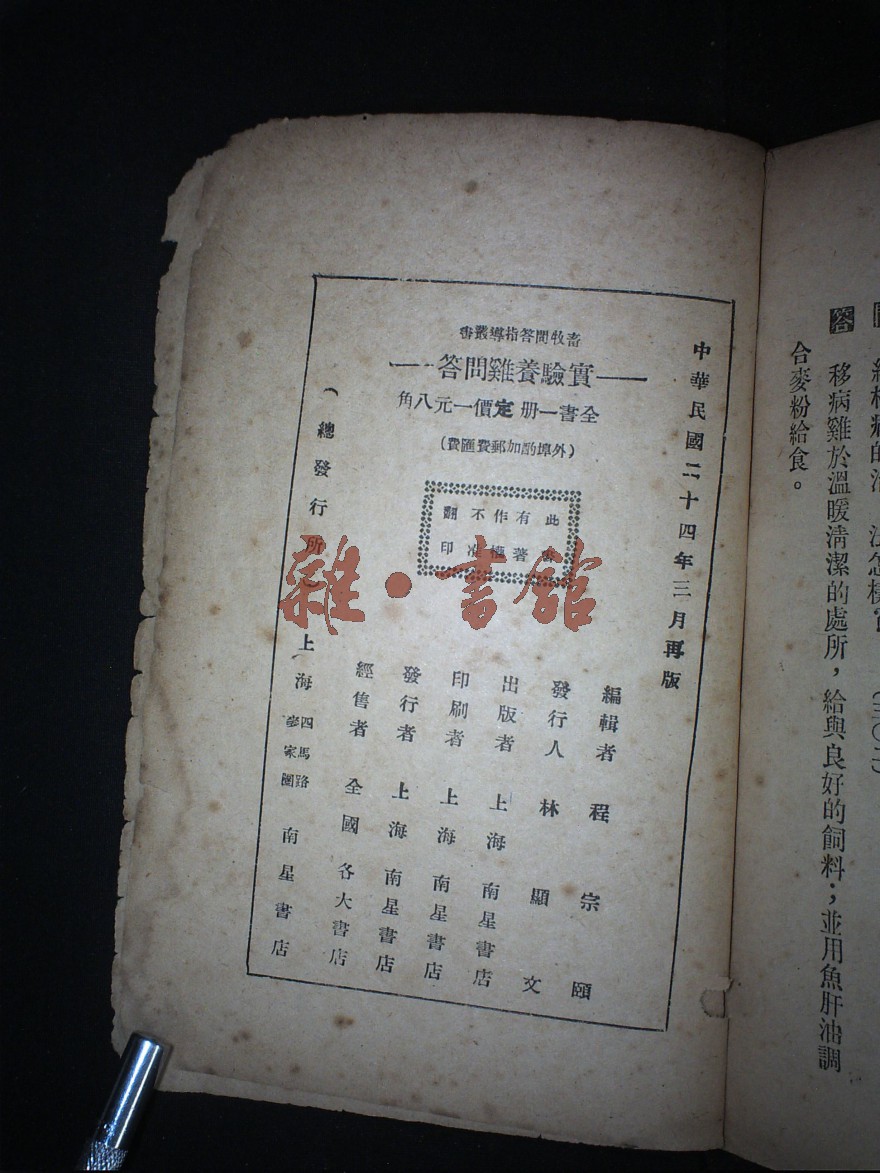 答　移病雞於溫暖清潔的處所，給與良好的飼料；並用魚肝油調
合麥粉給食。
中華民國二十四年三月再版
畜牧問答指導叢書
實驗養雞問答
全書一册定價一元八角
（外埠酌加郵費匯費）
此書
有著
作權
不准
翻印
編輯者　程宗頤
發行人　林顯文
出版者　上海南星書店
印刷者　上海南星書店
發行者　上海南星書店
經售者　全國各大書店
（總發行所）上海四馬路麥家圈南星書店
雜·書館